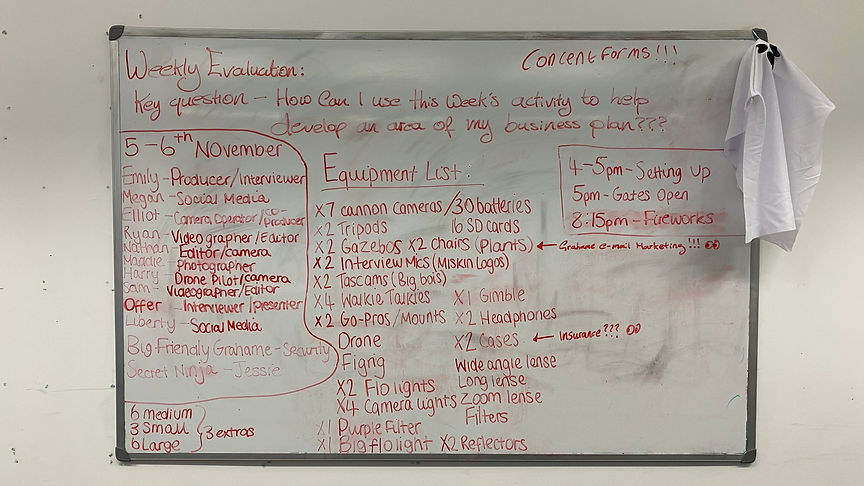 Weekly Evaluation:
Content Forms!!!
Key question - How Can I use this Week's activity to help
develop an area of my business plan???
5-6th November
Emily - Producer/Interviewer
Megan - Social Media
Elliot - Camera Operator/co-Producer
Ryan - Videographer/Editor
Nathan - Editor/camera
Maddie - Photographer
Harry - Drone Pilot/camera
Sam - Videographer/Editor
Offer - Interviewer/presenter
Liberty - Social Media
Big Friendly Grahame - Security
Secret Ninja - Jessie
6 medium
3 Small
6 Large
3 extras
Equipment List:
x7 cannon cameras /30 batteries
x2 Tripods 16 SD cards
x2 Gazebos x2 chairs (Plants) ← Grahame e-mail Marketing!!!
x2 Interview Mics (Miskin Logos)
x2 Tascams (Big bois)
x4 Walkie Talkies x1 Gimble
x2 Go-Pros/Mounts x2 Headphones
Drone x2 Cases ← Insurance???
Figrig Wide angle lense
x2 Flo lights Long lense
x4 Camera Lights Zoom lense
Filters
x1 Purple Filter
x1 Big flo light x2 Reflectors
4-5pm - Setting Up
5pm - Gates Open
8:15pm - Fireworks